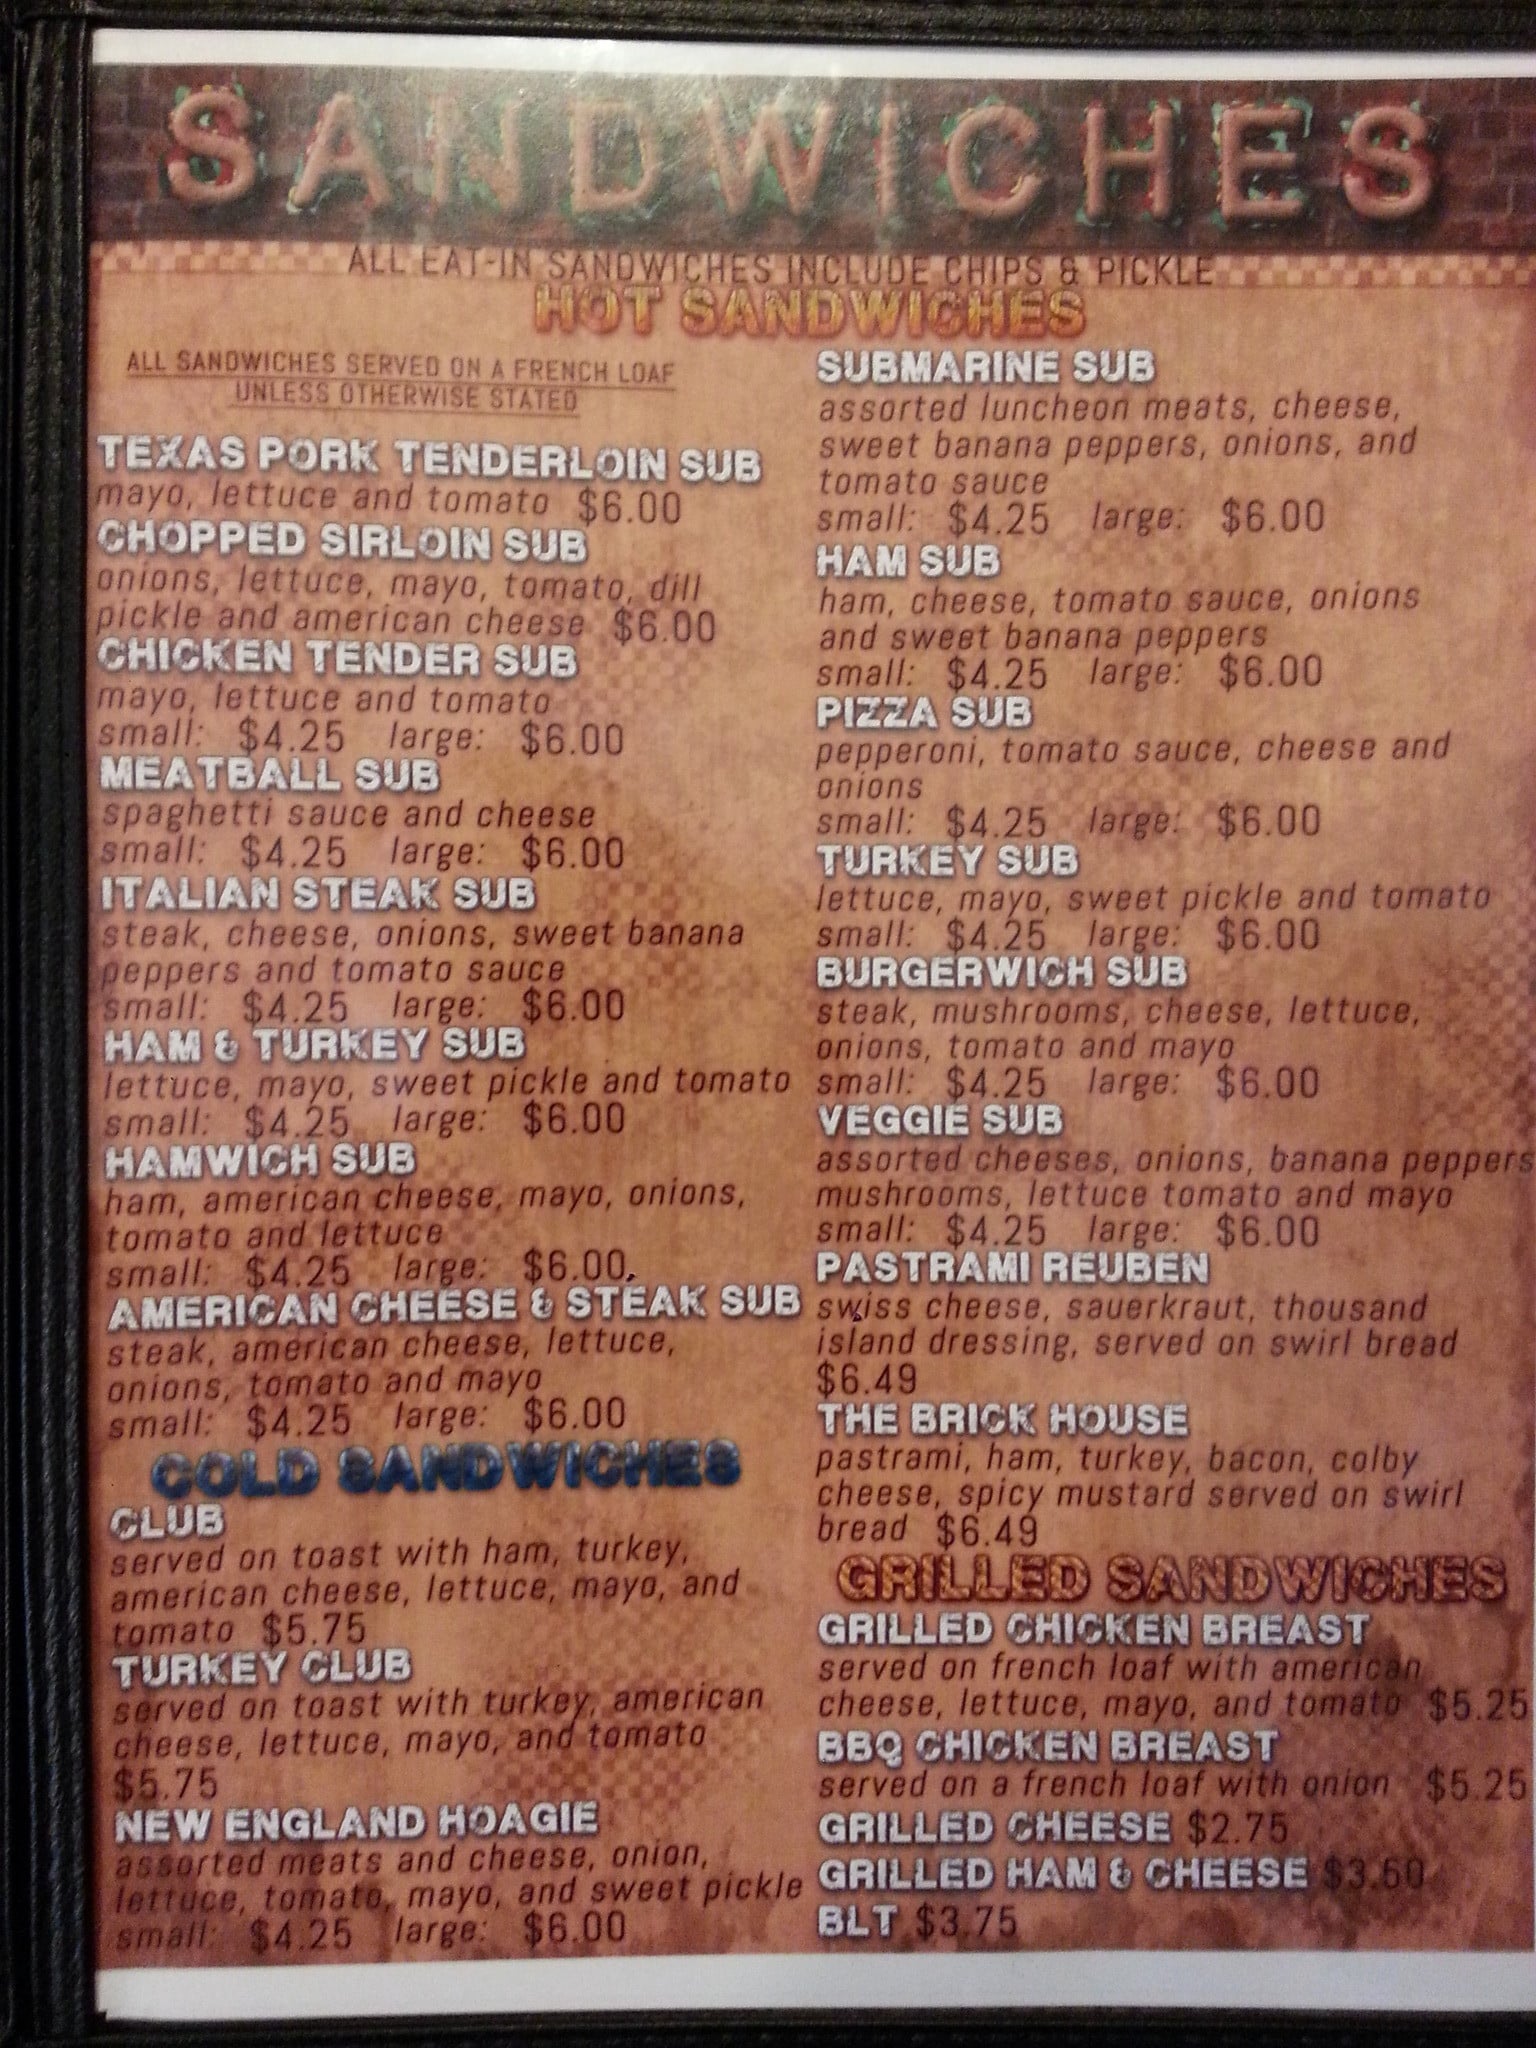 SANDWICHES
ALL EAT-IN SANDWICHES INCLUDE CHIPS & PICKLE
HOT SANDWICHES
ALL SANDWICHES SERVED ON A FRENCH LOAF
UNLESS OTHERWISE STATED
TEXAS PORK TENDERLOIN SUB
mayo, lettuce and tomato $6.00
CHOPPED SIRLOIN SUB
onions, lettuce, mayo, tomato, dill
pickle and american cheese $6.00
CHICKEN TENDER SUB
mayo, lettuce and tomato
small: $4.25 large: $6.00
MEATBALL SUB
spaghetti sauce and cheese
small: $4.25 large: $6.00
ITALIAN STEAK SUB
steak, cheese, onions, sweet banana
peppers and tomato sauce
small: $4.25 large: $6.00
HAM & TURKEY SUB
lettuce, mayo, sweet pickle and tomato
small: $4.25 large: $6.00
HAMWICH SUB
ham, american cheese, mayo, onions,
tomato and lettuce
small: $4.25 large: $6.00
AMERICAN CHEESE & STEAK SUB
steak, american cheese, lettuce,
onions, tomato and mayo
small: $4.25 large: $6.00
COLD SANDWICHES
CLUB
served on toast with ham, turkey,
american cheese, lettuce, mayo, and
tomato $5.75
TURKEY CLUB
served on toast with turkey, american
cheese, lettuce, mayo, and tomato
$5.75
NEW ENGLAND HOAGIE
assorted meats and cheese, onion,
lettuce, tomato, mayo, and sweet pickle
small: $4.25 large: $6.00
SUBMARINE SUB
assorted luncheon meats, cheese,
sweet banana peppers, onions, and
tomato sauce
small: $4.25 large: $6.00
HAM SUB
ham, cheese, tomato sauce, onions
and sweet banana peppers
small: $4.25 large: $6.00
PIZZA SUB
pepperoni, tomato sauce, cheese and
onions
small: $4.25 large: $6.00
TURKEY SUB
lettuce, mayo, sweet pickle and tomato
small: $4.25 large: $6.00
BURGERWICH SUB
steak, mushrooms, cheese, lettuce,
onions, tomato and mayo
small: $4.25 large: $6.00
VEGGIE SUB
assorted cheeses, onions, banana peppers
mushrooms, lettuce tomato and mayo
small: $4.25 large: $6.00
PASTRAMI REUBEN
swiss cheese, sauerkraut, thousand
island dressing, served on swirl bread
$6.49
THE BRICK HOUSE
pastrami, ham, turkey, bacon, colby
cheese, spicy mustard served on swirl
bread $6.49
GRILLED SANDWICHES
GRILLED CHICKEN BREAST
served on french loaf with american
cheese, lettuce, mayo, and tomato $5.25
BBQ CHICKEN BREAST
served on a french loaf with onion $5.25
GRILLED CHEESE $2.75
GRILLED HAM & CHEESE
BLT $3.75